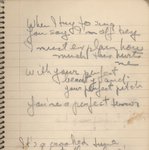 When I try to sing
You say I'm off key
must explain how
much this hurts
me
With your perfect
beauty and
your perfect pitch
You're a perfect
It's a